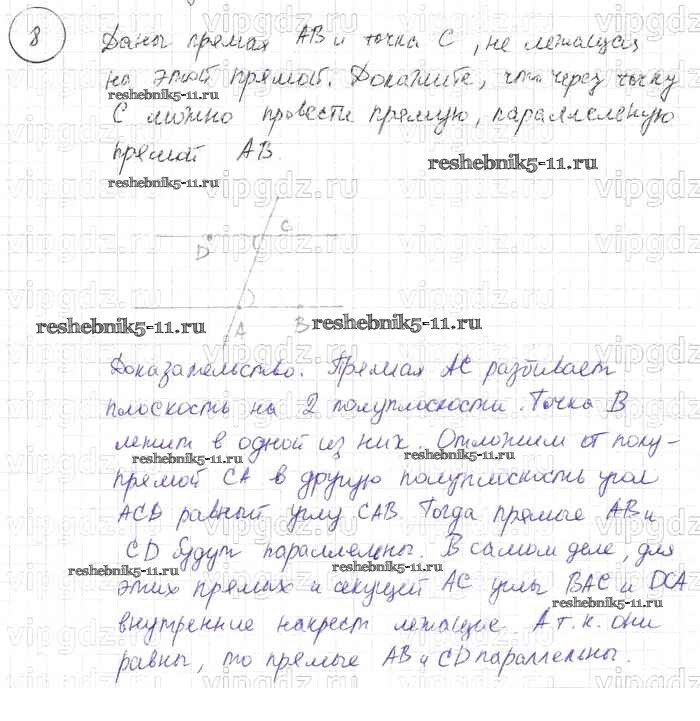 8
Даны прямая AB и точка C, не лежащая
на этой прямой. Докажите, что через точку
C можно провести прямую, параллельную
прямой AB.
D C
A B
Доказательство. Прямая AC разбивает
плоскость на 2 полуплоскости. Точка B
лежит в одной из них. Отложим от полу-
прямой CA в другую полуплоскость угол
ACD равный углу CAB. Тогда прямые AB и
CD будут параллельны. В самом деле, для
этих прямых и секущей AC углы BAC и DCA
внутренние накрест лежащие. А т.к. они
равны, то прямые AB и CD параллельны.
reshebnik5-11.ru
reshebnik5-11.ru
reshebnik5-11.ru
reshebnik5-11.ru
reshebnik5-11.ru
reshebnik5-11.ru
reshebnik5-11.ru
reshebnik5-11.ru
reshebnik5-11.ru
vipgdz.ru